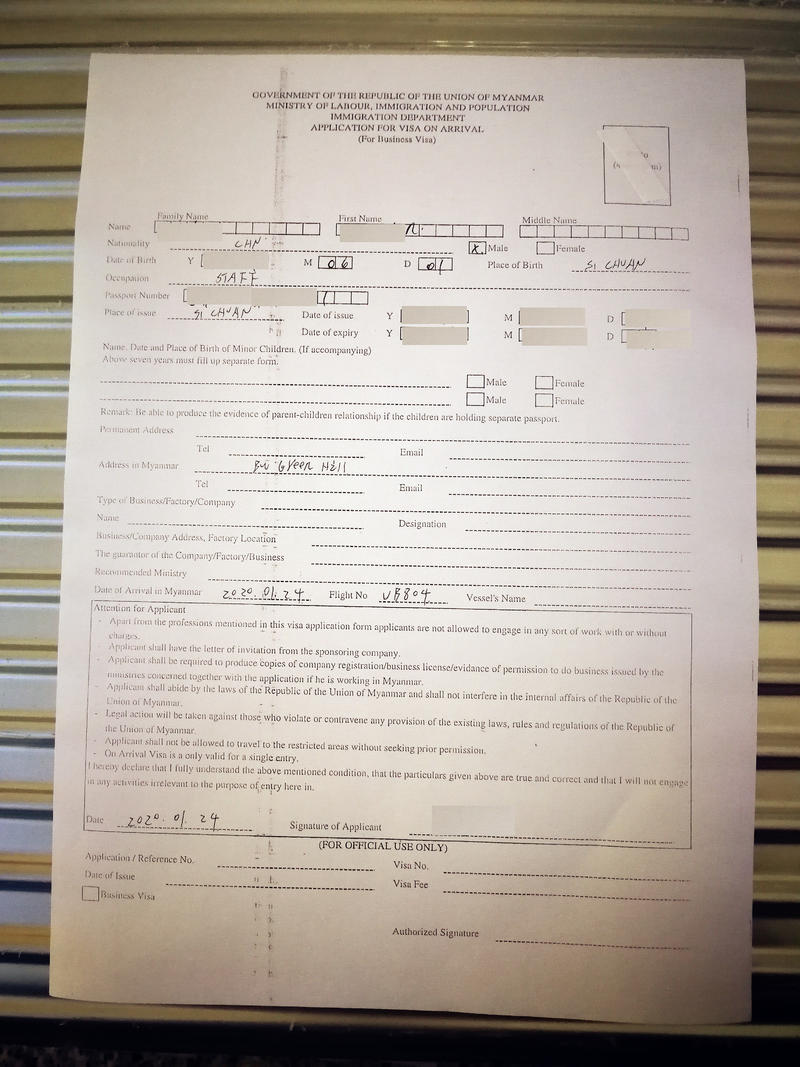 GOVERNMENT OF THE REPUBLIC OF THE UNION OF MYANMAR
MINISTRY OF LABOUR, IMMIGRATION AND POPULATION
IMMIGRATION DEPARTMENT
APPLICATION FOR VISA ON ARRIVAL
(For Business Visa)
Family Name First Name Middle Name
Name
Nationality CHN X Male Female
Date of Birth Y M 06 D 01 Place of Birth SI CHUAN
Occupation STAFF
Passport Number
Place of issue SI CHUAN Date of issue Y M D
Date of expiry Y M D
Name, Date and Place of Birth of Minor Children. (If accompanying)
Above seven years must fill up separate form.
Male Female
Male Female
Remark: Be able to produce the evidence of parent-children relationship if the children are holding separate passport.
Permanent Address
Tel Email
Address in Myanmar Green Hill
Tel Email
Type of Business/Factory/Company
Name Designation
Business/Company Address, Factory Location
The guarantor of the Company/Factory/Business
Recommended Ministry
Date of Arrival in Myanmar 2020.01.24 Flight No UB804 Vessel's Name
Attention for Applicant
- Apart from the professions mentioned in this visa application form applicants are not allowed to engage in any sort of work with or without
charges.
- Applicant shall have the letter of invitation from the sponsoring company.
- Applicant shall be required to produce copies of company registration/business license/evidence of permission to do business issued by the
ministries concerned together with the application if he is working in Myanmar.
- Applicant shall abide by the laws of the Republic of the Union of Myanmar and shall not interfere in the internal affairs of the Republic of the
Union of Myanmar.
- Legal action will be taken against those who violate or contravene any provision of the existing laws, rules and regulations of the Republic of
the Union of Myanmar.
- Applicant shall not be allowed to travel to the restricted areas without seeking prior permission.
- On Arrival Visa is only valid for a single entry.
I hereby declare that I fully understand the above mentioned condition, that the particulars given above are true and correct and that I will not engage
in any activities irrelevant to the purpose of entry here in.
Date 2020.01.24 Signature of Applicant
(FOR OFFICIAL USE ONLY)
Application / Reference No. Visa No.
Date of Issue Visa Fee
Business Visa
Authorized Signature